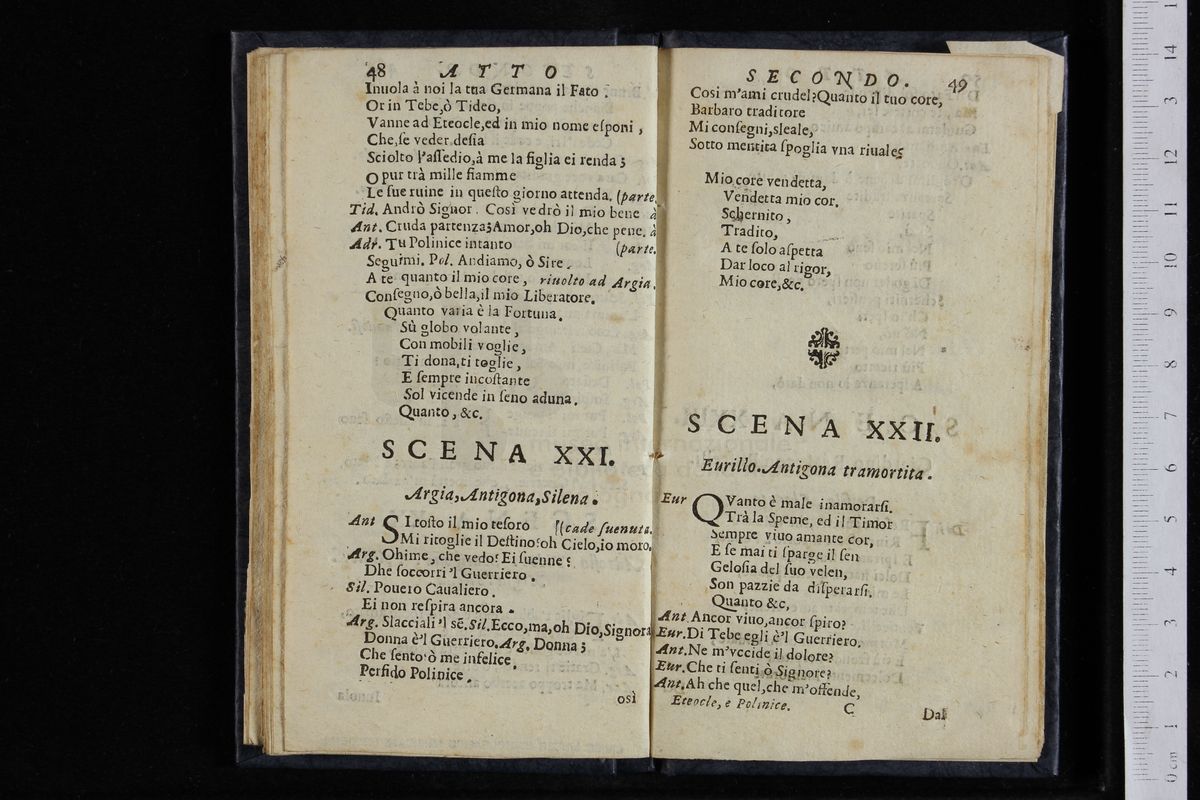 48 ATTO
Inuola à noi la tua Germana il Fato.
Or in Tebe,ò Tideo,
Vanne ad Eteocle,ed in mio nome eſponi,
Che,ſe veder deſia
Sciolto l'aſſedio,à me la figlia ei renda;
O pur trà mille fiamme
Le ſue ruine in queſto giorno attenda. (parte.
Tid. Andrò Signor. Così vedrò il mio bene à
Ant. Cruda partenza;Amor,oh Dio,che pene. à
Adr. Tu Polinice intanto (parte.
Seguimi. Pol. Andiamo, ò Sire.
A te quanto il mio core, riuolto ad Argia.
Conſegno,ò bella,il mio Liberatore.
Quanto varia è la Fortuna.
Sù globo volante,
Con mobili voglie,
Ti dona,ti toglie,
E ſempre incoſtante
Sol vicende in ſeno aduna.
Quanto, &c.
SCENA XXI.
Argia,Antigona,Silena.
Ant SI toſto il mio teſoro (cade ſuenuta.
Mi ritoglie il Deſtino?oh Cielo,io moro.
Arg. Ohime, che vedo? Ei ſuenne?
Dhe ſoccorri 'l Guerriero.
Sil. Pouero Caualiero.
Ei non reſpira ancora.
Arg. Slacciali 'l sē. Sil. Ecco,ma,oh Dio,Signora
Donna è'l Guerriero. Arg. Donna;
Che ſento ò me infelice.
Perfido Polinice.
osì
SECONDO. 49
Cosi m'ami crudel?Quanto il tuo core,
Barbaro traditore
Mi conſegni,sleale,
Sotto mentita ſpoglia vna riuale?
Mio core vendetta,
Vendetta mio cor.
Schernito,
Tradito,
A te ſolo aſpetta
Dar loco al rigor,
Mio core,&c.
SCENA XXII.
Eurillo.Antigona tramortita.
Eur QVanto è male inamorarſi.
Trà la Speme, ed il Timor
Sempre viuo amante cor,
E ſe mai ti ſparge il ſen
Geloſia del ſuo velen,
Son pazzie da diſperarſi.
Quanto &c,
Ant. Ancor viuo,ancor ſpiro?
Eur. Di Tebe egli è'l Guerriero.
Ant. Ne m'vccide il dolore?
Eur. Che ti ſenti ò Signore?
Ant. Ah che quel,che m'offende,
Eteocle, e Polinice. C Dal